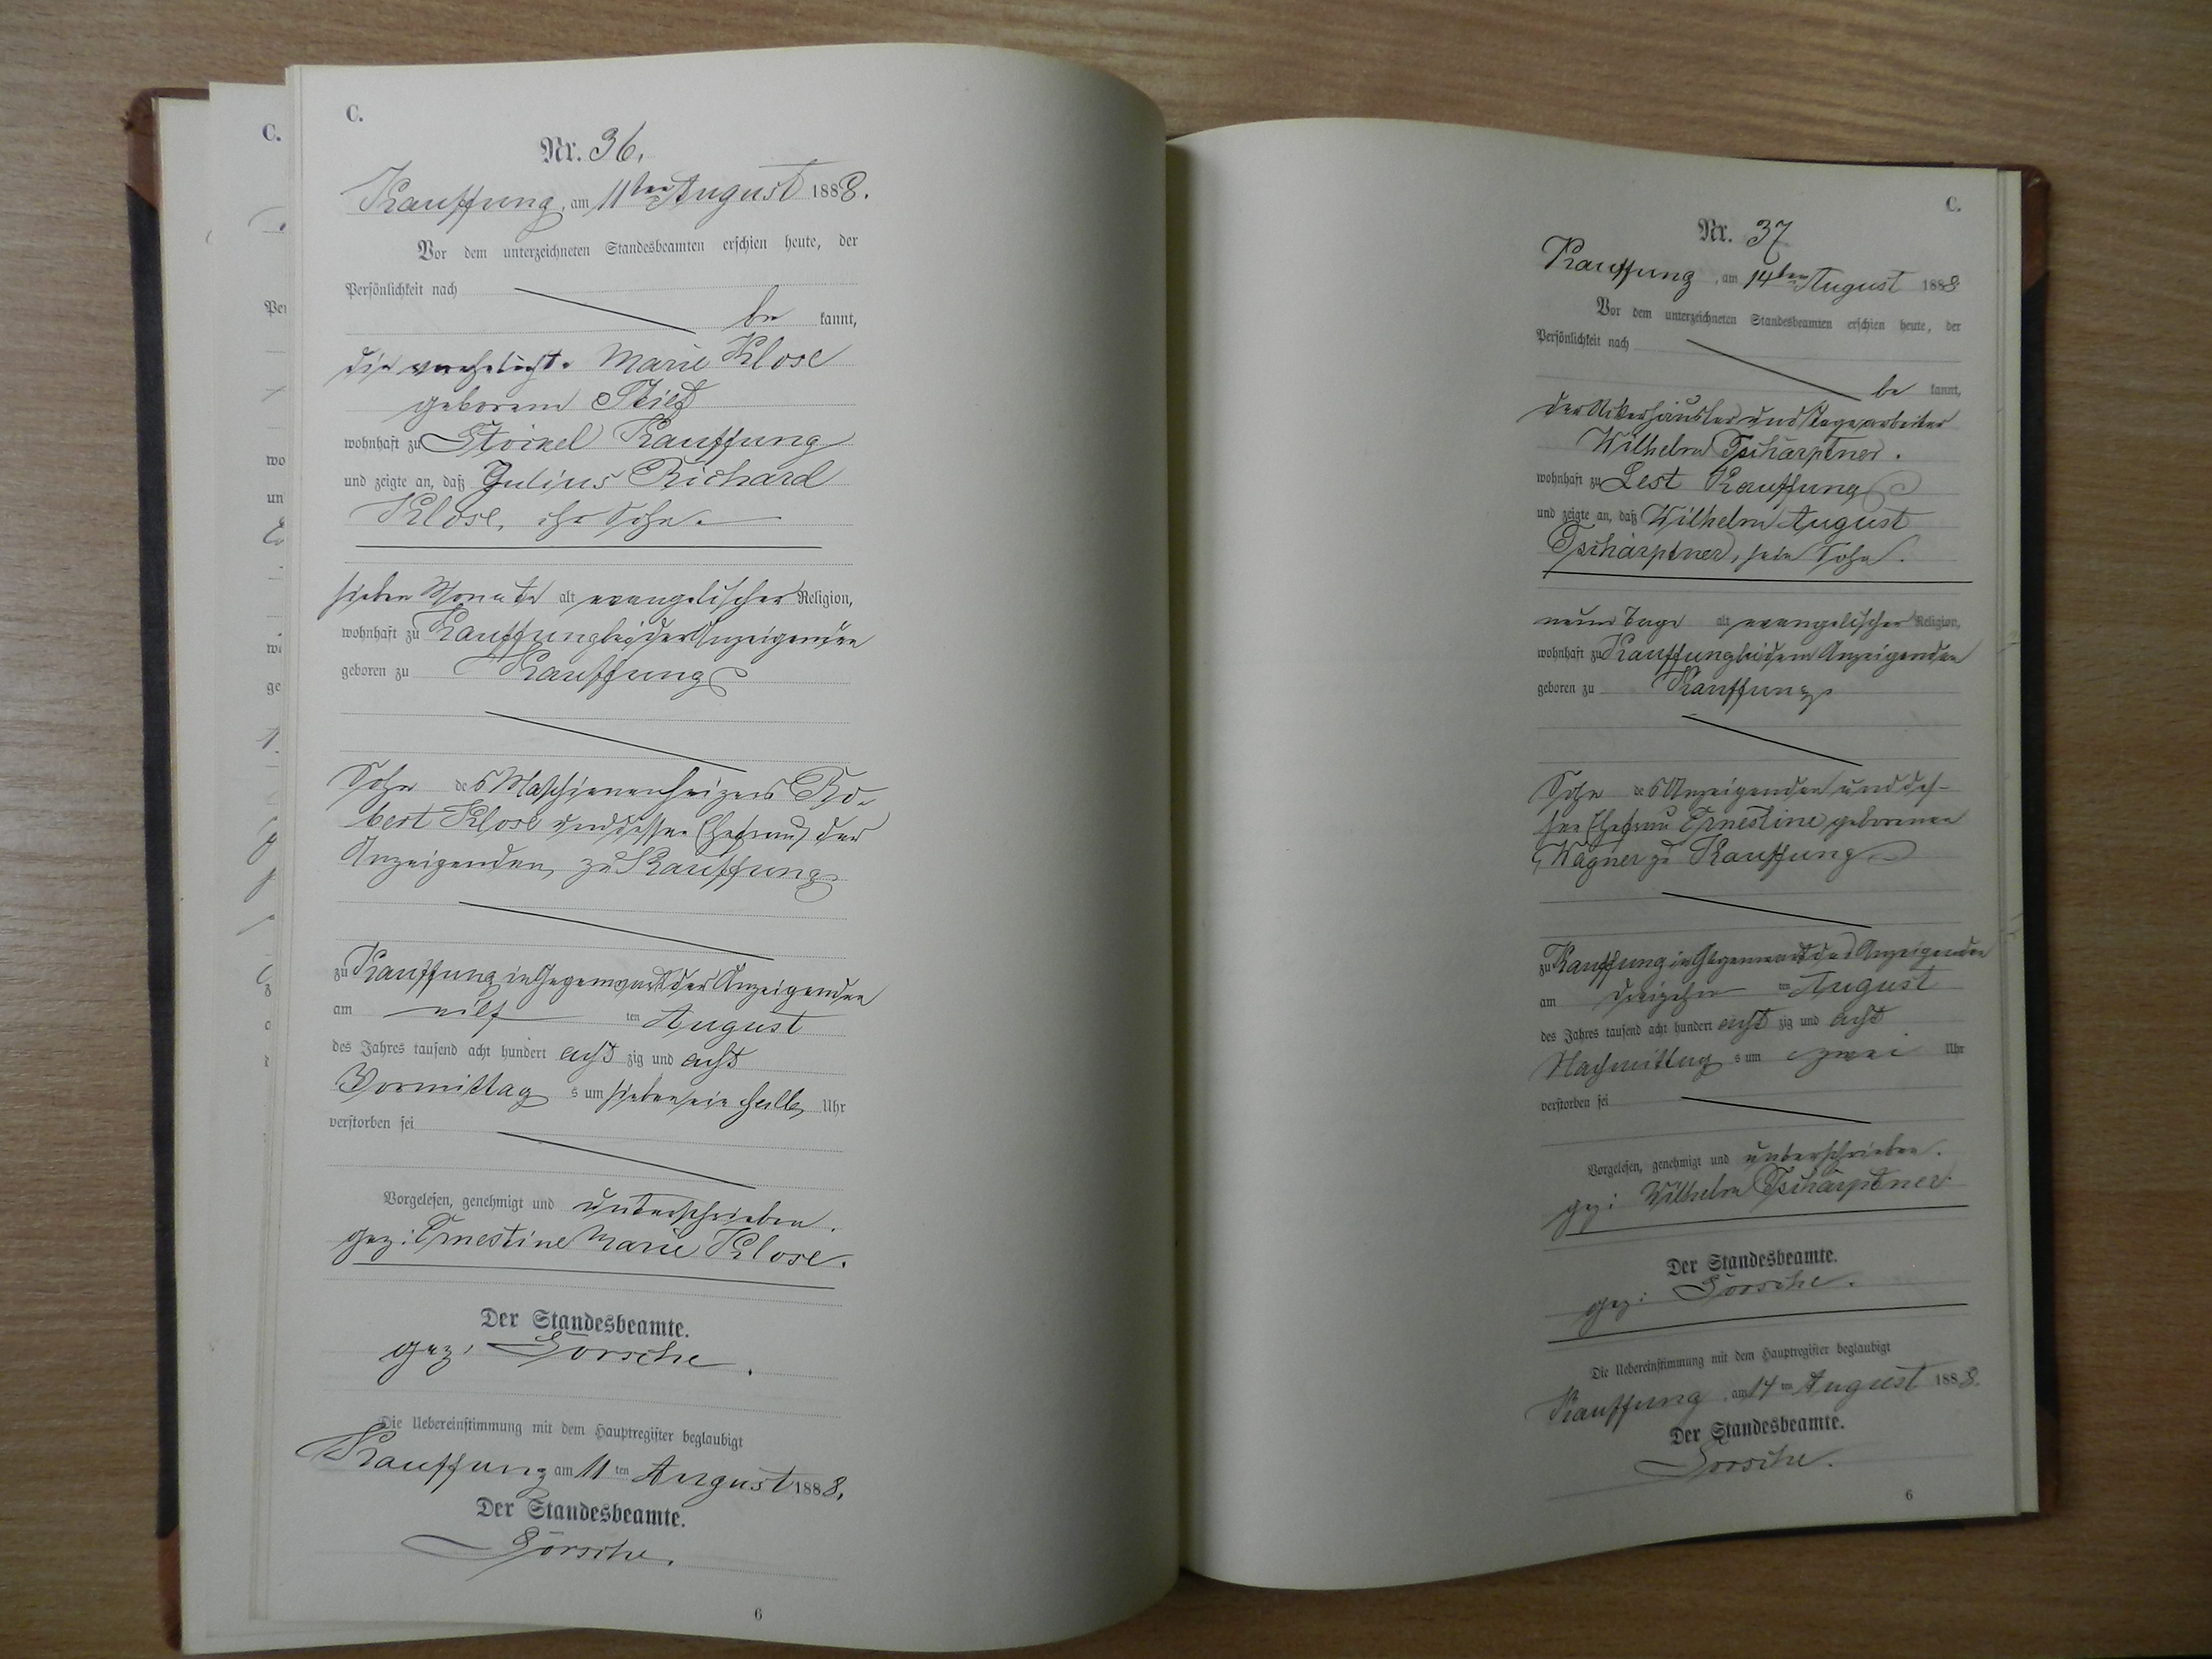 C.
Nr. 36.
Kauffung, am 11ten August 1888.
Vor dem unterzeichneten Standesbeamten erschien heute, der
Persönlichkeit nach
be kannt,
die verehelichte Marie Klose
geborene
wohnhaft zu Stöckel Kauffung
und zeigte an, daß Julius Richard
Klose, ihr Sohn.
sieben Monate alt evangelischer Religion,
wohnhaft zu Kauffung bei der Anzeigenden
geboren zu Kauffung
Sohn des Maschienenheizers Ro-
bert Klose und dessen Ehefrau, der
Anzeigenden, zu Kauffung
zu Kauffung in Gegenwart der Anzeigenden
am eilf ten August
des Jahres tausend acht hundert acht zig und acht
Vormittag s um sieben ein halb Uhr
verstorben sei
Vorgelesen, genehmigt und unterschrieben.
gez: Ernestine Marie Klose.
Der Standesbeamte.
gez: Görsche.
Die Uebereinstimmung mit dem Hauptregister beglaubigt
Kauffung am 11 ten August 1888.
Der Standesbeamte.
Görsche.
6
C.
Nr. 37
Kauffung, am 14ten August 1888
Vor dem unterzeichneten Standesbeamten erschien heute, der
Persönlichkeit nach
be kannt,
der Ackerhäusler und Tagearbeiter
Wilhelm Tschärptner.
wohnhaft zu Lest Kauffung
und zeigte an, daß Wilhelm August
Tschärptner, sein Sohn.
neun Tage alt evangelischer Religion,
wohnhaft zu Kauffung bei dem Anzeigenden
geboren zu Kauffung
Sohn des Anzeigenden und des-
sen Ehefrau Ernestine geborenen
Wagner zu Kauffung
zu Kauffung in Gegenwart des Anzeigenden
am dreizehn ten August
des Jahres tausend acht hundert acht zig und acht
Nachmittag s um zwei Uhr
verstorben sei
Vorgelesen, genehmigt und unterschrieben.
gez: Wilhelm Tschärptner
Der Standesbeamte.
gez: Görsche.
Die Uebereinstimmung mit dem Hauptregister beglaubigt
Kauffung, am 14 ten August 1888.
Der Standesbeamte.
Görsche.
6